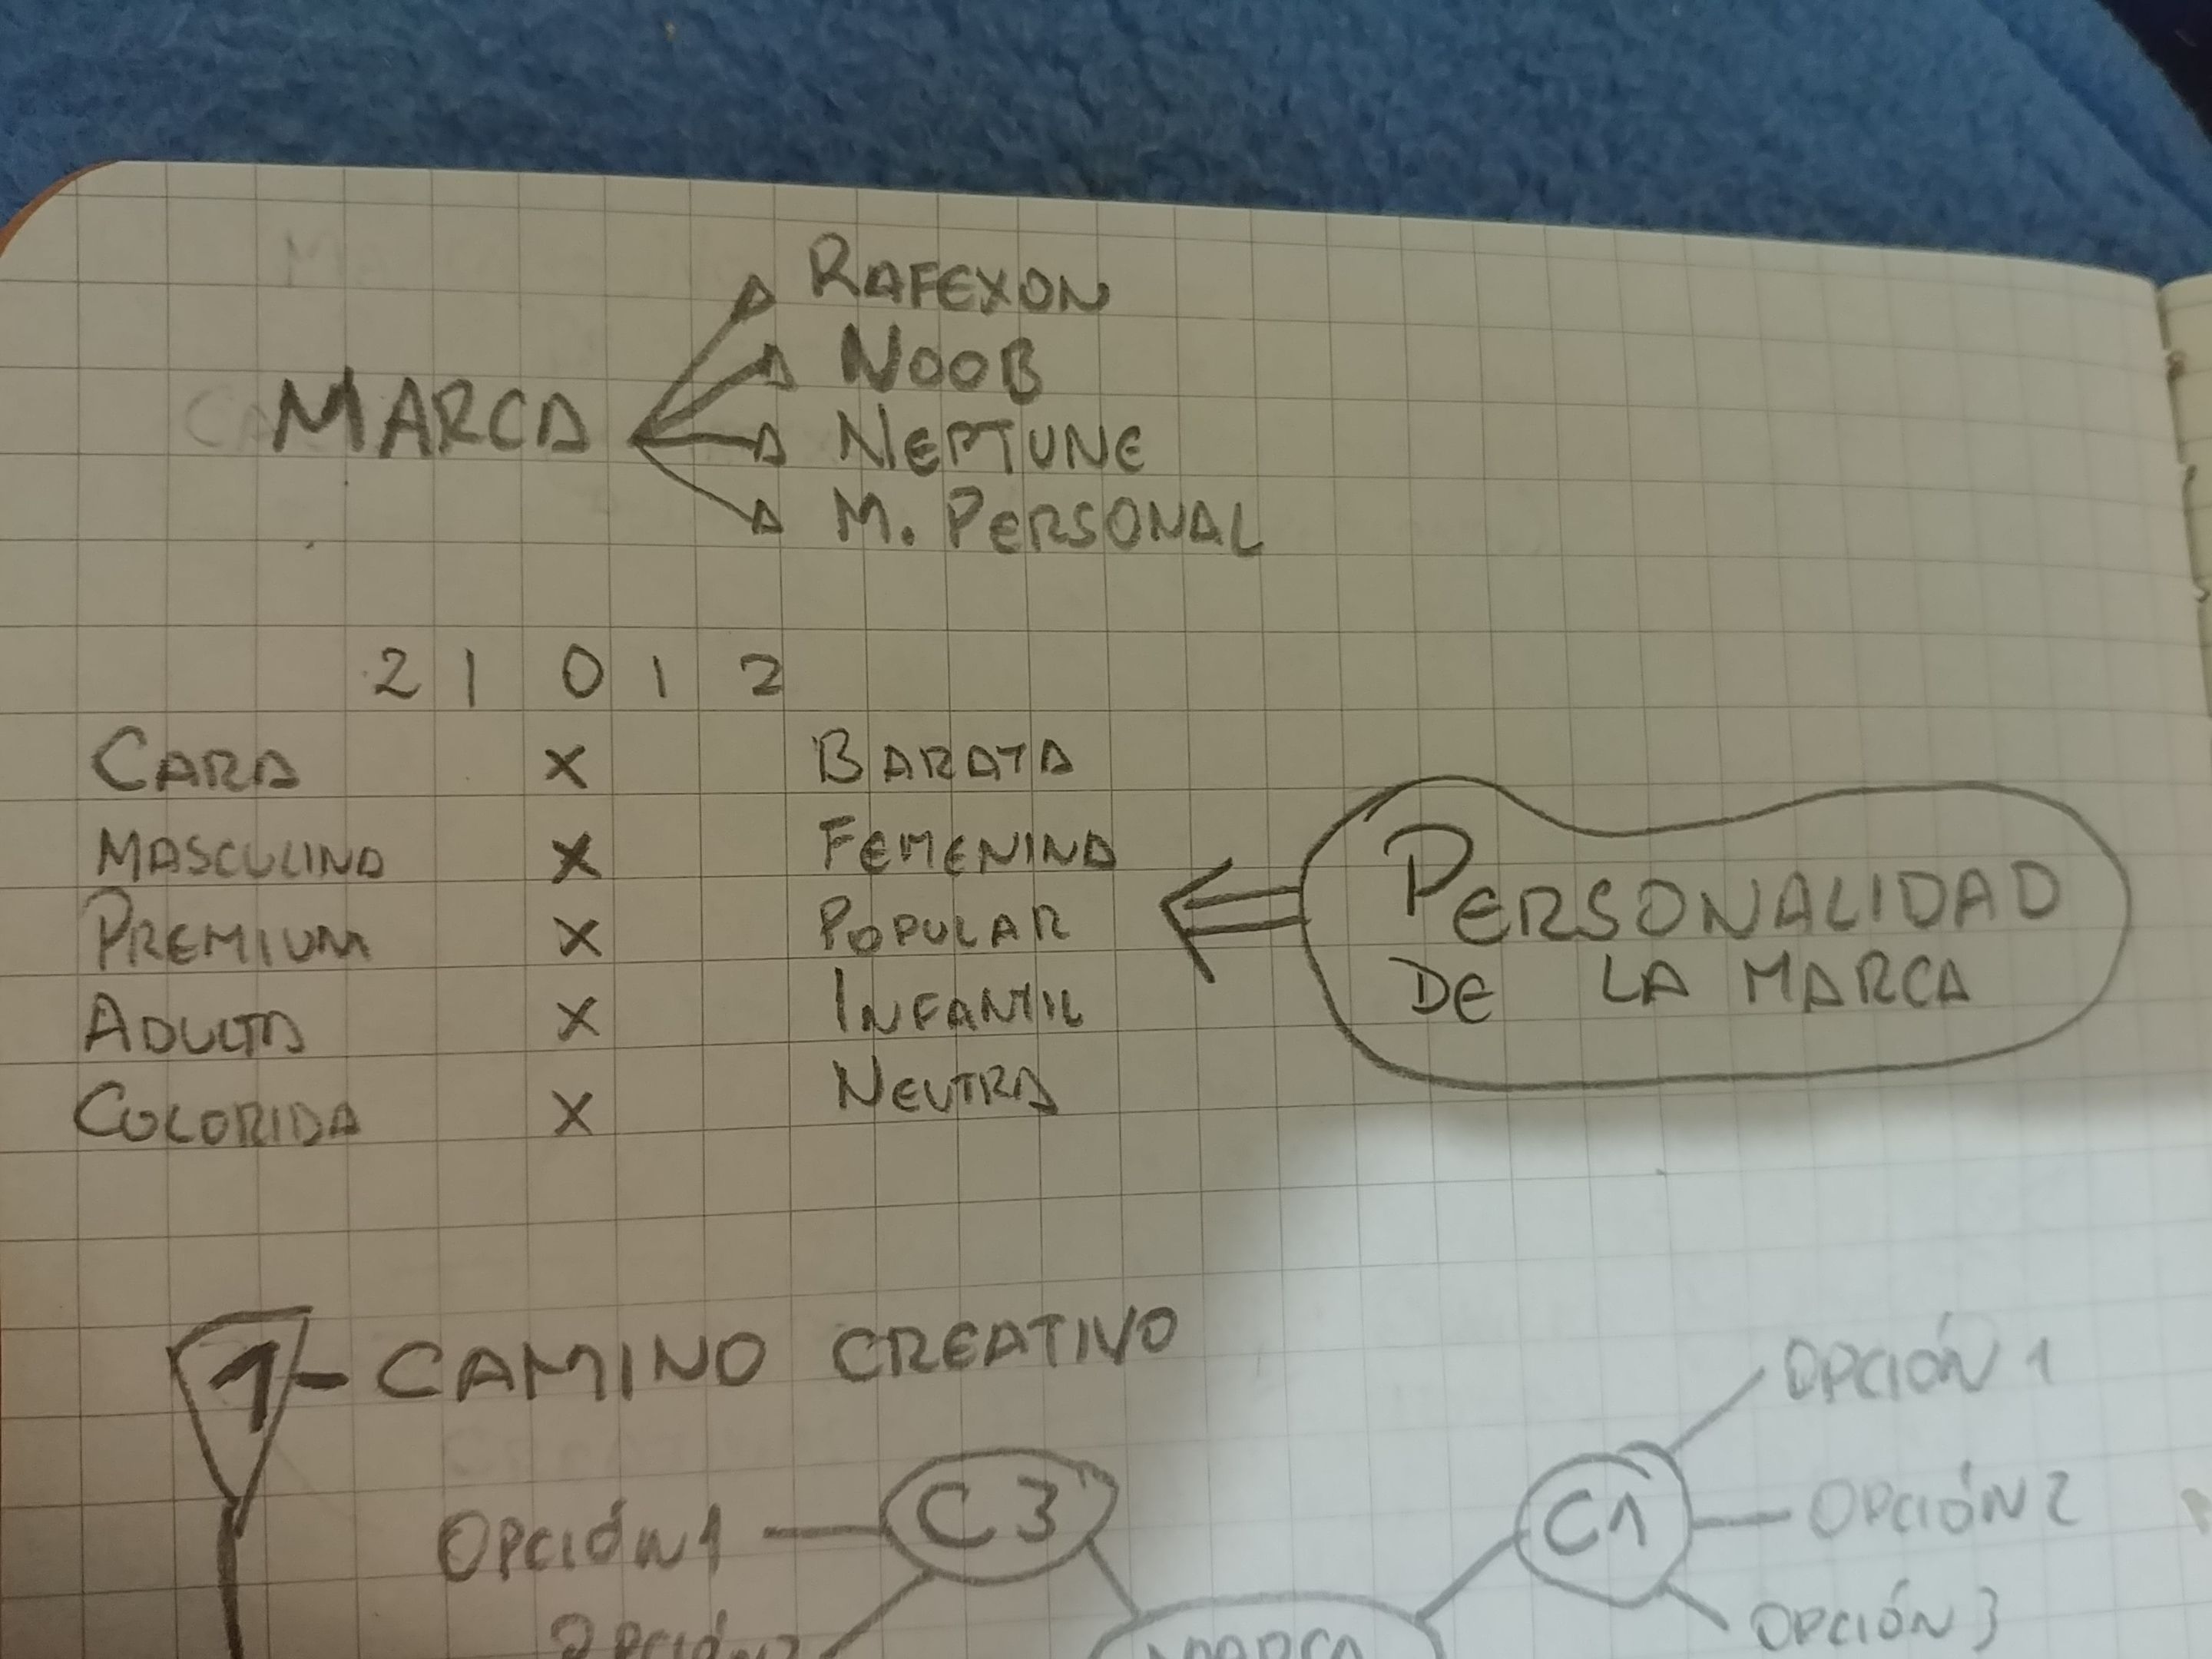 RAFEXON
NOOB
MARCA
NEPTUNE
M. PERSONAL
2 1 0 1 2
CARA X BARATA
MASCULINA X FEMENINA
PREMIUM X POPULAR
ADULTA X INFANTIL
COLORIDA X NEUTRA
PERSONALIDAD
DE LA MARCA
1- CAMINO CREATIVO
OPCIÓN 1
C3
OPCIÓN 1
C1
OPCIÓN 2
OPCIÓN 2
OPCIÓN 3
MARCA